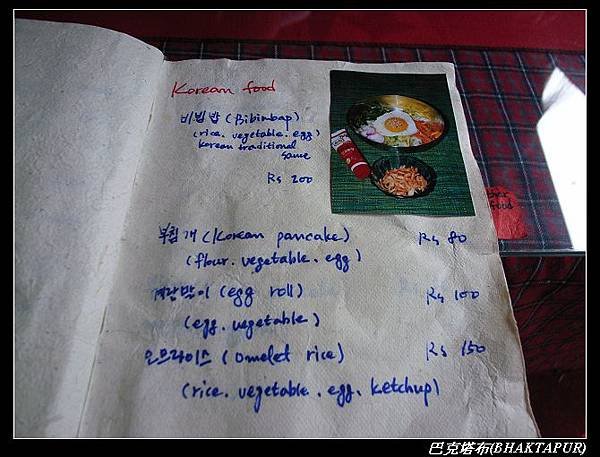 Korean food
비빔밥 (Bibinbap)
(rice. vegetable. egg)
korean traditional
same
Rs 200
부침개 (Korean pancake) Rs 80
(flour. vegetable. egg)
계란말이 (egg roll) Rs 100
(egg. vegetable)
오므라이스 (omelet rice) Rs 150
(rice. vegetable. egg. ketchup)
food
巴克塔布(BHAKTAPUR)